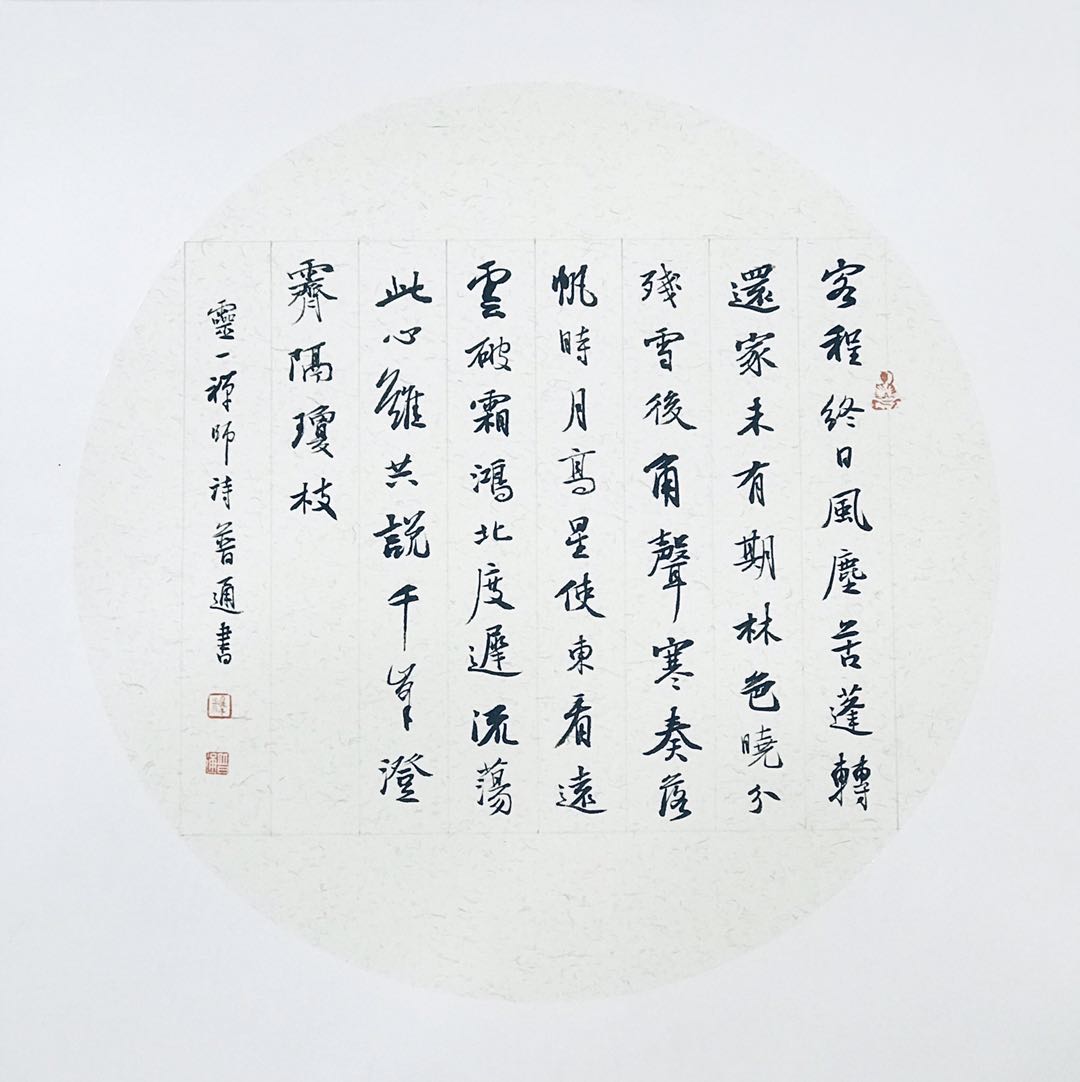 客程終日風塵苦蓬轉
還家未有期林色曉分
殘雪後角聲寒奏落
帆時月高星使東看遠
雲破霜鴻北度遲流蕩
此心雖共說千峯澄
霽隔瓊枝
靈一禪師詩普通書